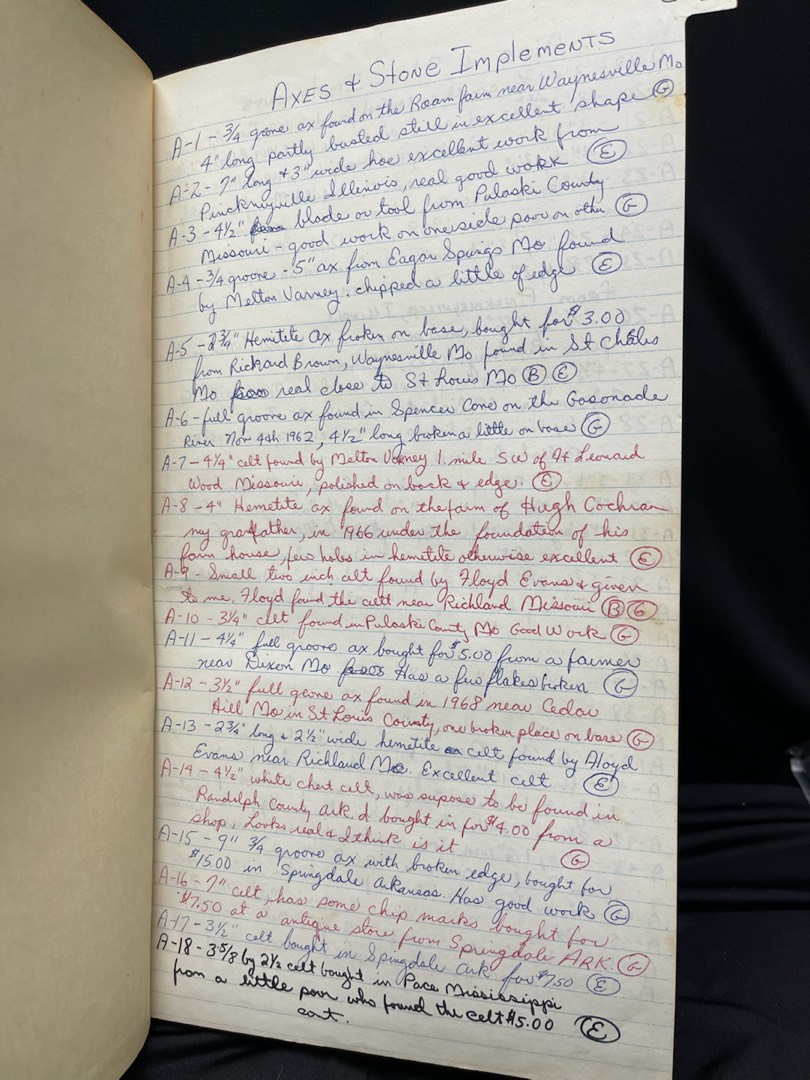 AXES & STONE IMPLEMENTS
A-1 - 3/4 grove ax found on the Roam farm near Waynesville Mo
4" long partly busted still in excellent shape G
A-2 - 7" long & 3" wide hoe excellent work from
Pinckneyville Illinois, real good work E
A-3 - 4 1/2" blade or tool from Pulaski County
Missouri - good work on one side poor on other G
A-4 - 3/4 groove - 5" ax from Eagar Springs Mo found
by Melton Varney. chipped a little of edge E
A-5 - 2 3/4" Hemitete ax broken on base, bought for $3.00
from Richard Brown, Waynesville Mo found in St Charles
Mo real close to St Louis Mo B E
A-6 - full groove ax found in Spencer Cone on the Gasonade
River Nov 4th 1962, 4 1/2" long broken a little on base G
A-7 - 4 1/4" celt found by Melton Varney 1 mile SW of Ft Leonard
Wood Missouri, polished on back & edge. E
A-8 - 4" Hemetite ax found on the farm of Hugh Cochran
my grandfather, in 1966 under the foundation of his
farm house, few holes in hemetite otherwise excellent E
A-9 - Small two inch celt found by Floyd Evans & given
to me. Floyd found the celt near Richland Missouri B G
A-10 - 3 1/4" celt found in Pulaski County Mo Good Work G
A-11 - 4 1/4" full groove ax bought for $5.00 from a farmer
near Dixon Mo Has a few flakes broken G
A-12 - 3 1/2" full grove ax found in 1968 near Cedar
Hill Mo in St Louis County, one broken place on base G
A-13 - 2 3/4" long & 2 1/2" wide hemetite celt found by Floyd
Evans near Richland Mo. Excellent celt E
A-14 - 4 1/2" white chert celt, was supose to be found in
Randolph County Ark. I bought in for $4.00 from a
shop, Looks real & I think is it G
A-15 - 9" 3/4 groove ax with broken edge, bought for
$15.00 in Springdale Arkansas. Has good work G
A-16 - 7" celt, has some chip marks bought for
$7.50 at a antique store from Springdale ARK. G
A-17 - 3 1/2" celt bought in Springdale Ark for $7.50 E
A-18 - 3 5/8 by 2 1/2 celt bought in Pace Mississippi
from a little poor who found the celt $5.00 E
cont.